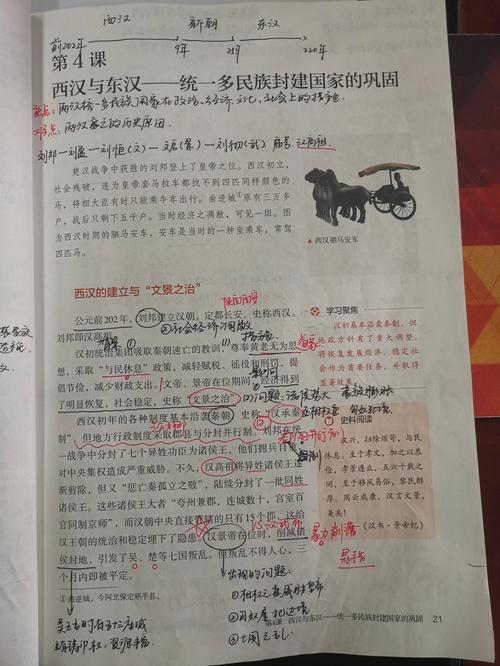 西汉 新朝 东汉
前202年 9年 25年 220年
第4课
西汉与东汉——统一多民族封建国家的巩固
重点：两汉统一多民族国家在政治、经济、文化、社会上的措施.
难点：两汉衰亡的历史原因.
楚汉战争中获胜的刘邦登上了皇帝之位。西汉初立，
社会残破，连为皇帝套马拉车都找不到四匹同样颜色的
马，将相大臣有时只能乘牛车出行。曲逆城①原有三万多
户，战后只剩下五千户。当时经济之凋敝，可见一斑。图
为西汉时期的驷马安车，安车是当时的一种坐乘车，常驾
四匹马。
▲西汉驷马安车
西汉的建立与“文景之治”
公元前202年，刘邦建立汉朝，定都长安，史称西汉。
刘邦即汉高祖。
②社会经济凋敝
措施
汉初统治集团吸取秦朝速亡的教训，尊奉黄老无为思
想，采取“与民休息”政策，减轻赋税、徭役和刑罚，提
倡节俭，减少财政支出。文帝、景帝在位期间，经济得到
了明显恢复，社会稳定，史称“文景之治”。
西汉初年的各种制度基本沿袭秦朝，史称“汉承秦
制”，但地方行政制度采取郡县与分封并行制。刘邦在统
一战争中分封了七个异姓功臣为诸侯王，他们拥兵自重，
对中央集权造成严重威胁。不久，汉高祖将异姓诸侯王逐
渐剪除，但又“惩亡秦孤立之败”，陆续分封了一批同姓
诸侯王。这些诸侯王大者“夸州兼郡，连城数十，宫室百
官同制京师”，而汉朝中央直接管辖的只有15个郡，这给
汉王朝的统治和稳定埋下了隐患。汉景帝在位时，削减诸
侯封地，引发了吴、楚等七国叛乱。但叛乱不得人心，三
个月内即被平定。
①曲逆城，今河北保定顺平县。
学习聚焦
汉初基本沿袭秦制，但
施政方针有了重大调整，
将恢复发展经济、稳定社会
作为首要任务，并取得
显著效果。
史料阅读
汉兴，扫除烦苛，与民
休息。至于孝文，加之以恭
俭，孝景遵业，五六十载之
间，至于移风易俗，黎民醇
厚。周云成康，汉言文景，
美矣！
——《汉书·景帝纪》
出现的问题：
①相权过重威胁皇帝
②匈奴屡犯边境
③七国之乱
第4课 西汉与东汉——统一多民族封建国家的巩固 21